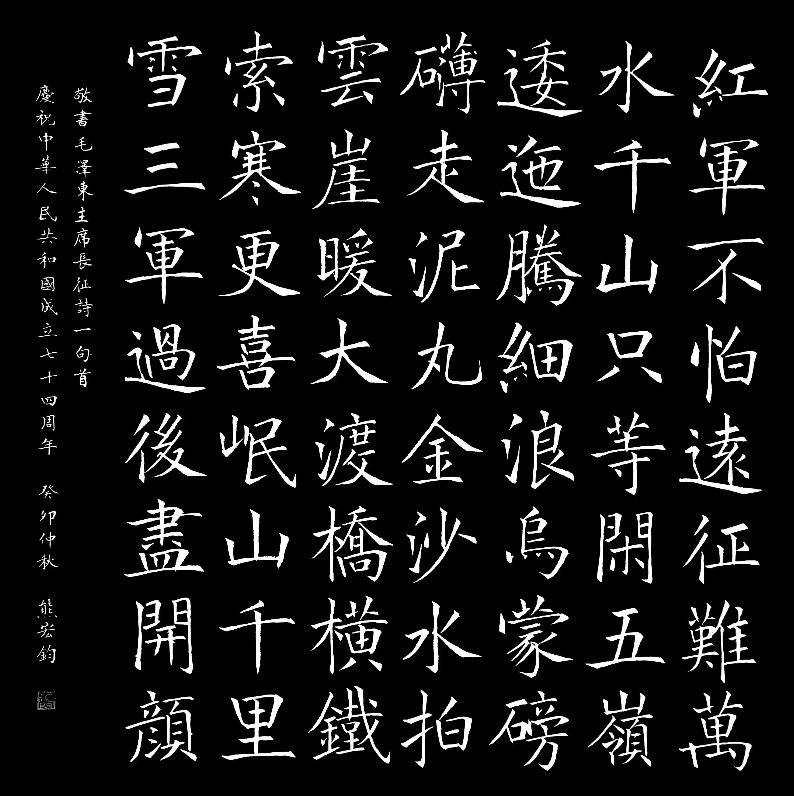 紅軍不怕遠征難萬
水千山只等閑五嶺
逶迤騰細浪烏蒙磅
礴走泥丸金沙水拍
雲崖暖大渡橋橫鐵
索寒更喜岷山千里
雪三軍過後盡開顏
敬書毛澤東主席長征詩一句首
慶祝中華人民共和國成立七十四周年 癸卯仲秋 熊宏鈞